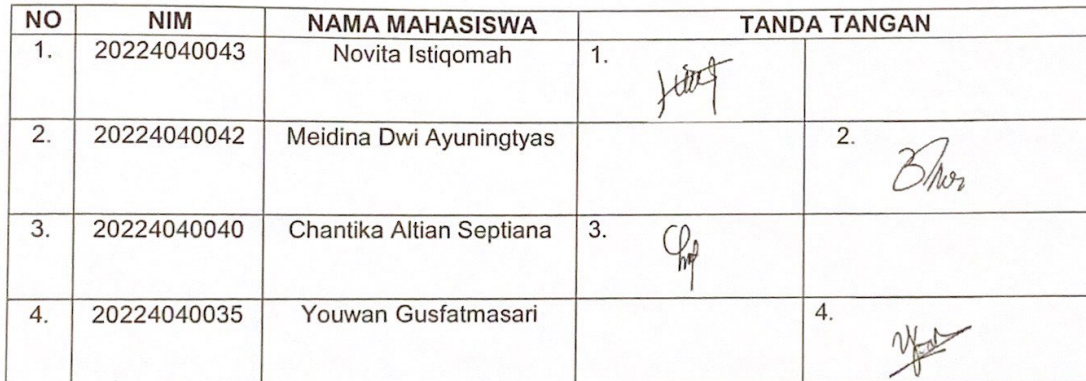 NO NIM NAMA MAHASISWA TANDA TANGAN
1. 20224040043 Novita Istiqomah 1.
2. 20224040042 Meidina Dwi Ayuningtyas 2.
3. 20224040040 Chantika Altian Septiana 3.
4. 20224040035 Youwan Gusfatmasari 4.